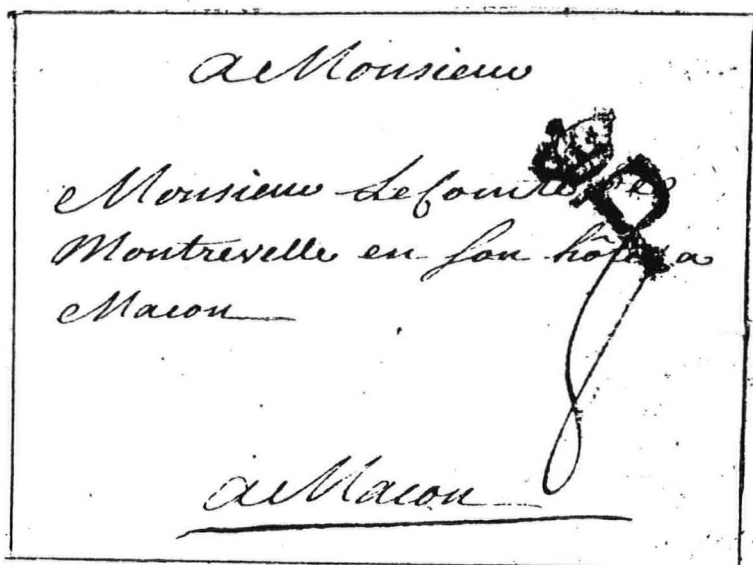 a Monsieur
Monsieur Le Comte de
Montrevelle en son hôtel a
Macon
a Macon